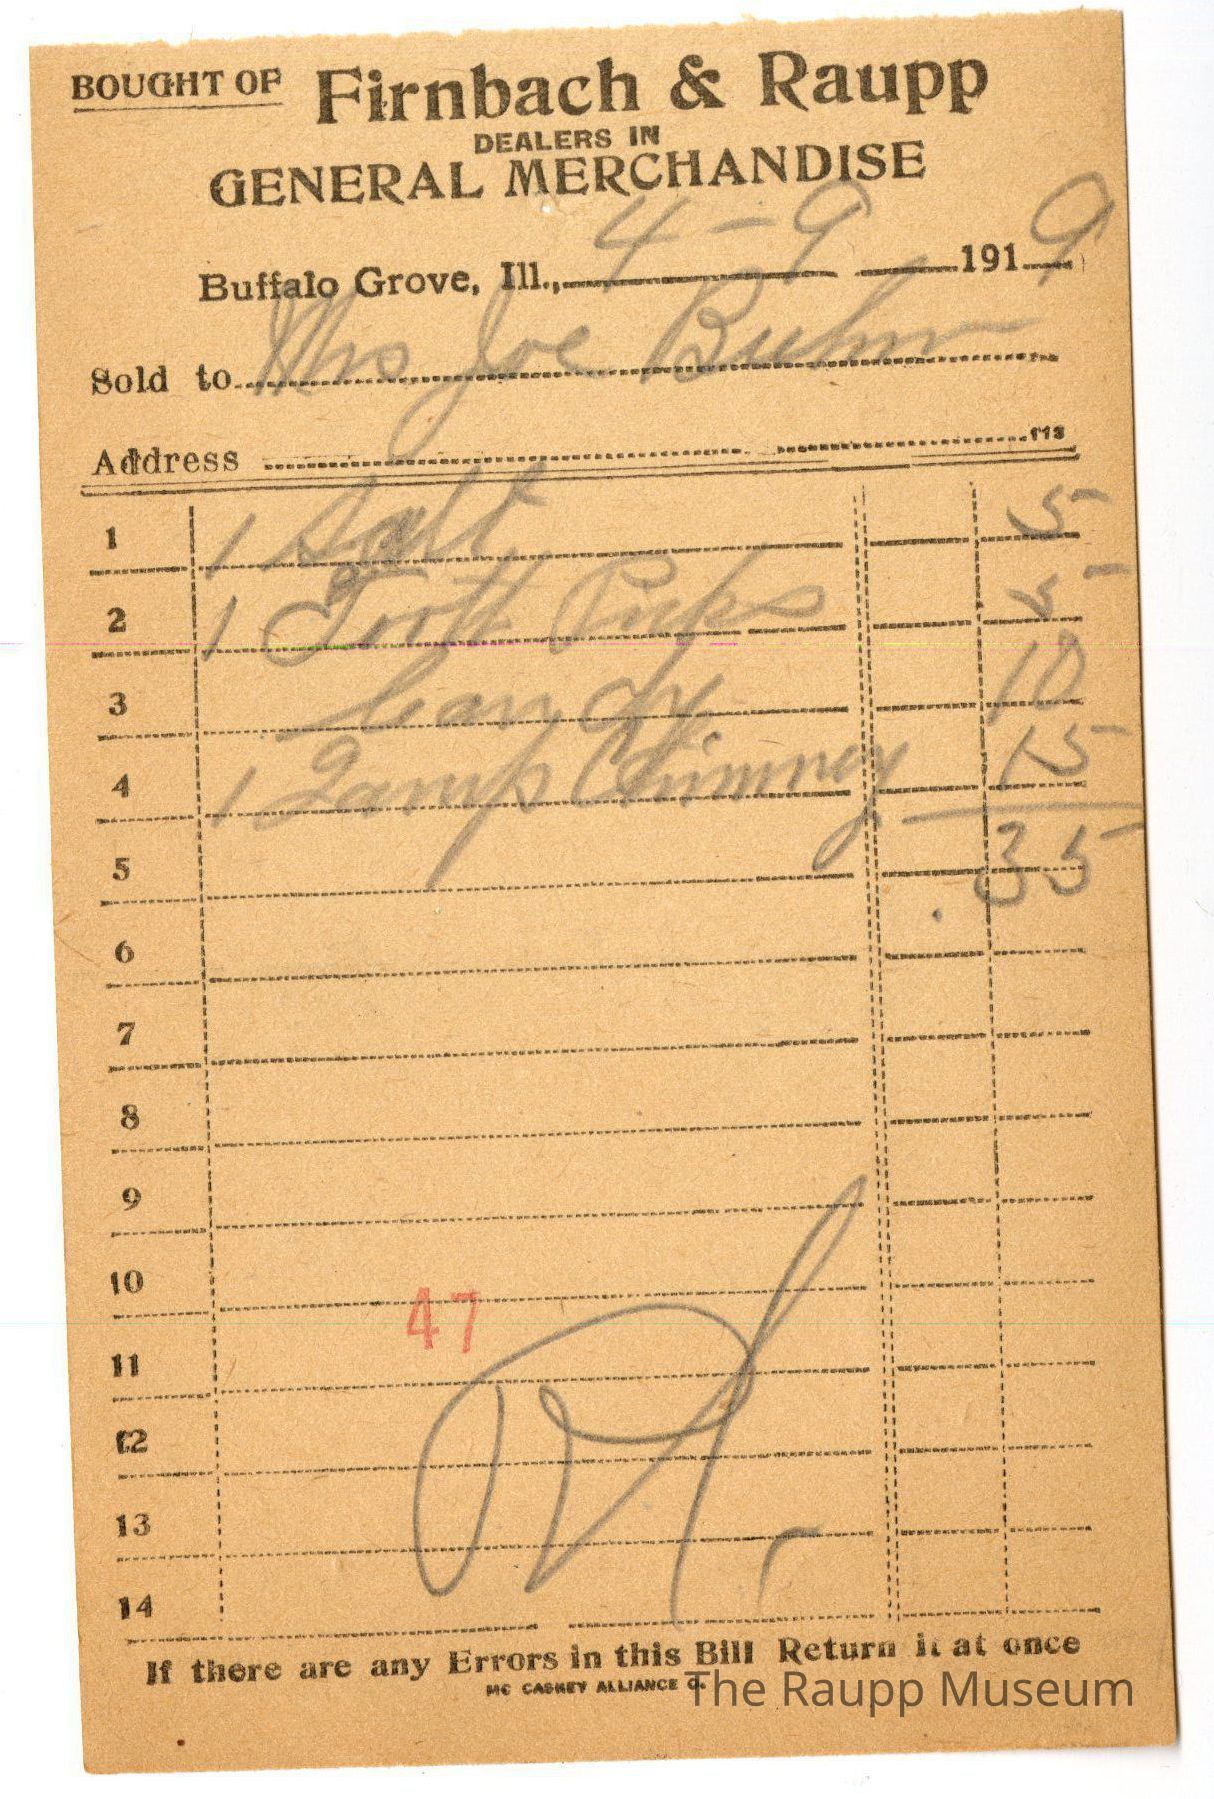 BOUGHT OF Firnbach & Raupp
DEALERS IN
GENERAL MERCHANDISE
Buffalo Grove, Ill., 4-9 1919
Sold to Mrs Joe Buhn
Address 113
1 1 Salt 5
2 1 Tooth Picks 5
3 Candy 10
4 1 Lamp Chimney 15
5 35
6
7
8
9
10
47
11
12
13
14
If there are any Errors in this Bill Return it at once
MC CASKEY ALLIANCE O.
The Raupp Museum